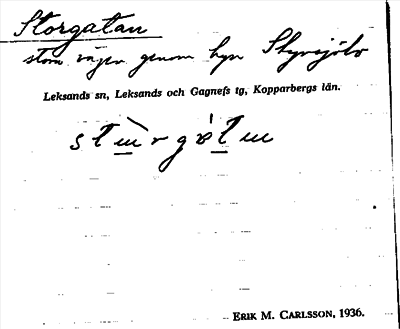 Storgatan
stora vägen genom byn Styrsjöbo
Leksands sn, Leksands och Gagnefs tg, Kopparbergs län.
ERIK M. CARLSSON, 1936.